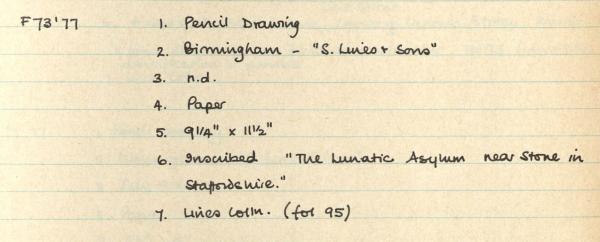 F73'77 1. Pencil Drawing
2. Birmingham - "S. Lines & Sons"
3. n.d.
4. Paper
5. 9 1/4" x 11 1/2"
6. Inscribed "The Lunatic Asylum near Stone in
Staffordshire."
7. Lines Colln. (fol 95)